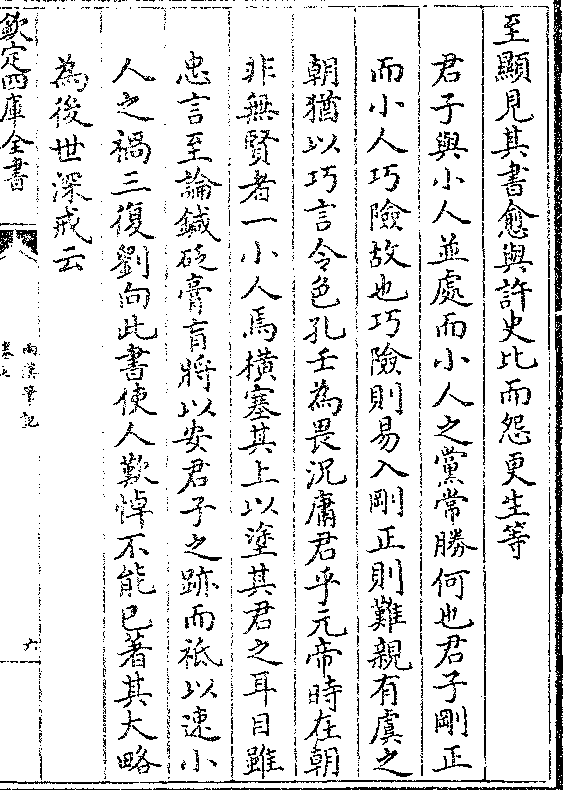 至顯見其書愈與許史比而怨更生等
君子與小人並處而小人之黨常勝何也君子剛正
而小人巧險故也巧險則易入剛正則難親有虞之
朝猶以巧言令色孔壬為畏況庸君乎元帝時在朝
非無賢者一小人焉橫塞其上以塗其君之耳目雖
忠言至論鍼砭膏肓將以安君子之跡而祗以速小
人之禍三復劉向此書使人歎悼不能已著其大略
為後世深戒云
欽定四庫全書
兩漢筆記
六